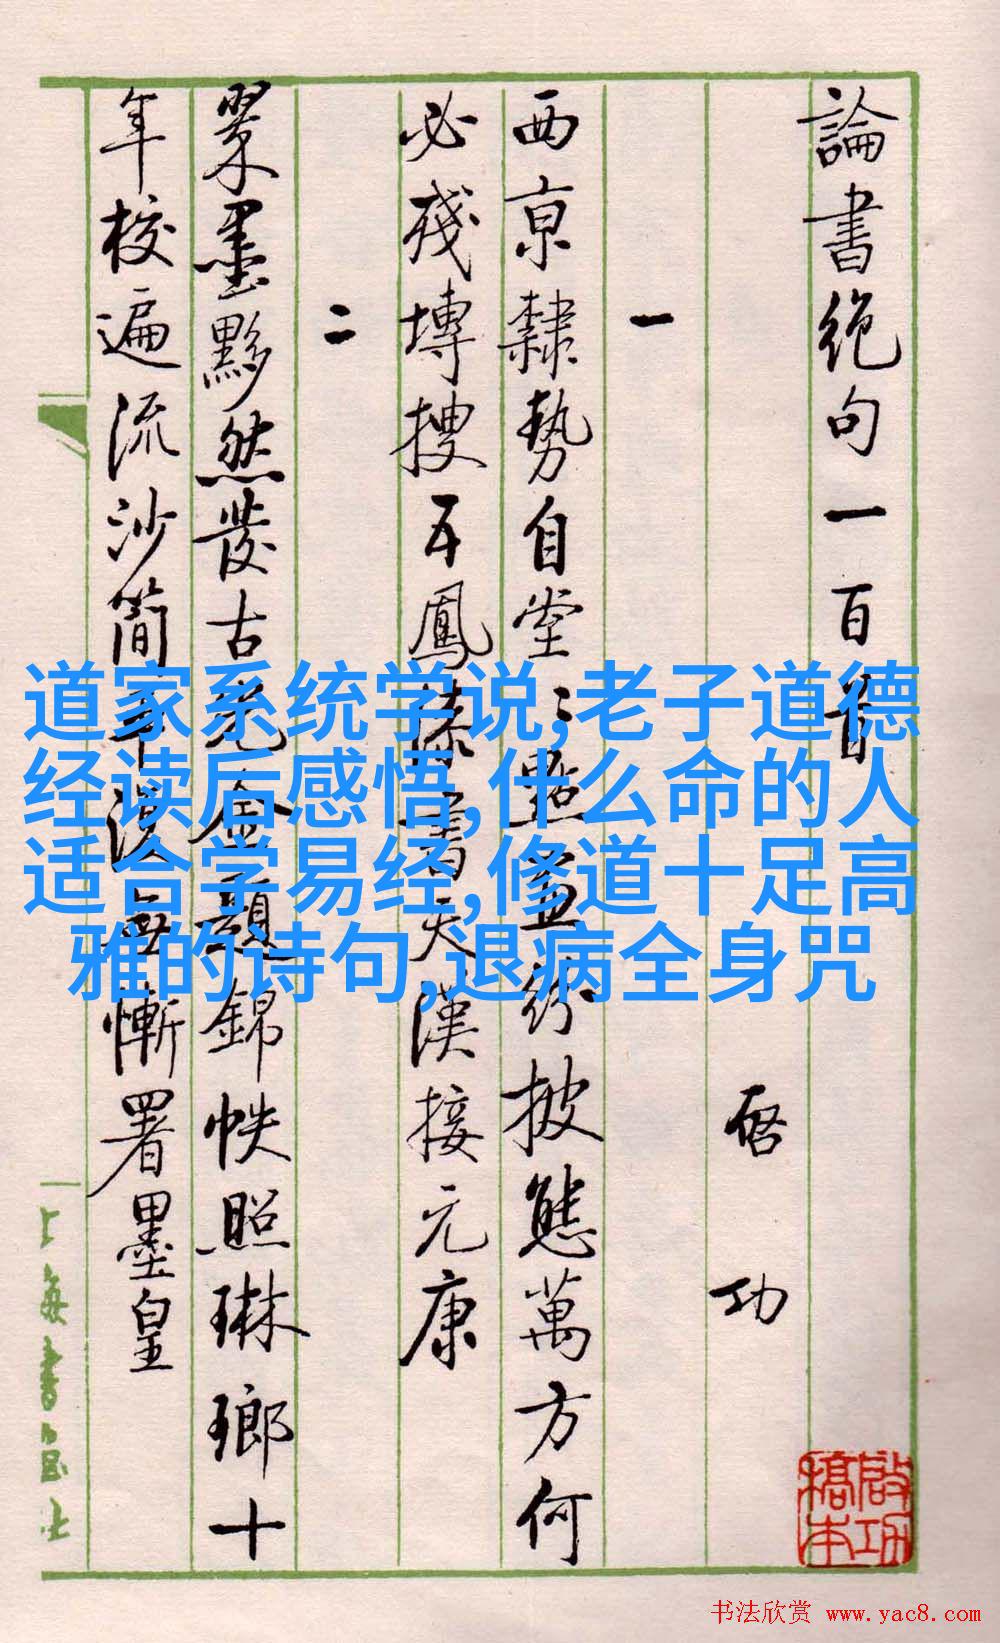 論書絕句一百首
啓功
一
西京隸勢自堂〻點畫紛披態萬方何
必殘塼搜五鳳漆書天漢接元康
二
翠墨黟然發古光金題錦帙照琳瑯十
年校遍流沙簡平復無慚署墨皇
啟功
稿本
上海書畫社
道家系统学说,老子道德
经读后感悟,什么命的人
适合学易经,修道十足高
雅的诗句,退病全身咒
书法欣赏 www.yac8.com